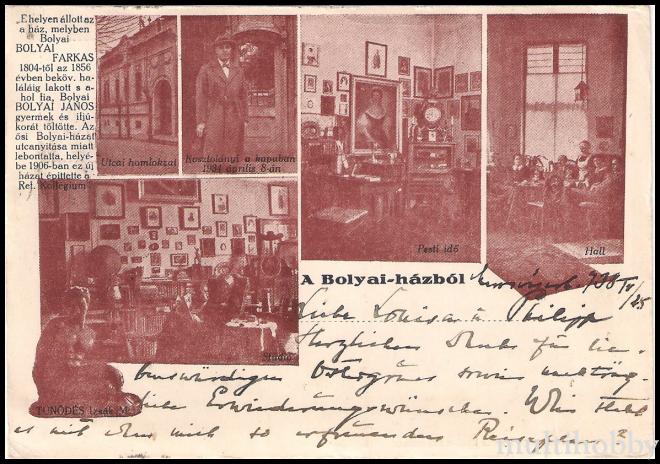 „E helyen állott az
a ház, melyben
Bolyai
BOLYAI
FARKAS
1804-től az 1856
évben beköv. ha-
láláig lakott s a-
hol fia, Bolyai
BOLYAI JÁNOS
gyermek és ifjú-
korát töltötte. Az
ősi Bolyai-házat
utcanyitása miatt
lebontatta, helyé-
be 1906-ban ez új
házat építtette a
Ref. Kollégium"
Utcai homlokzat
Kosztolányi a kapuban
1934 április 8-án
Pesti idő
Hall
A Bolyai-házból
Studio
TŰNŐDÉS Izsák M.
Liebe Louisa u Philipp
Herzlichen Dank für lie-
benswürdigen Ostergrüsse sowie
Erwiederungswünsche. Wie steht
es mit dem mich so erfreuenden
multihobby